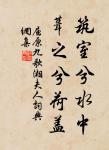 筑室兮水中
葺之兮荷盖
屈原九歌湘夫人詞典
網集